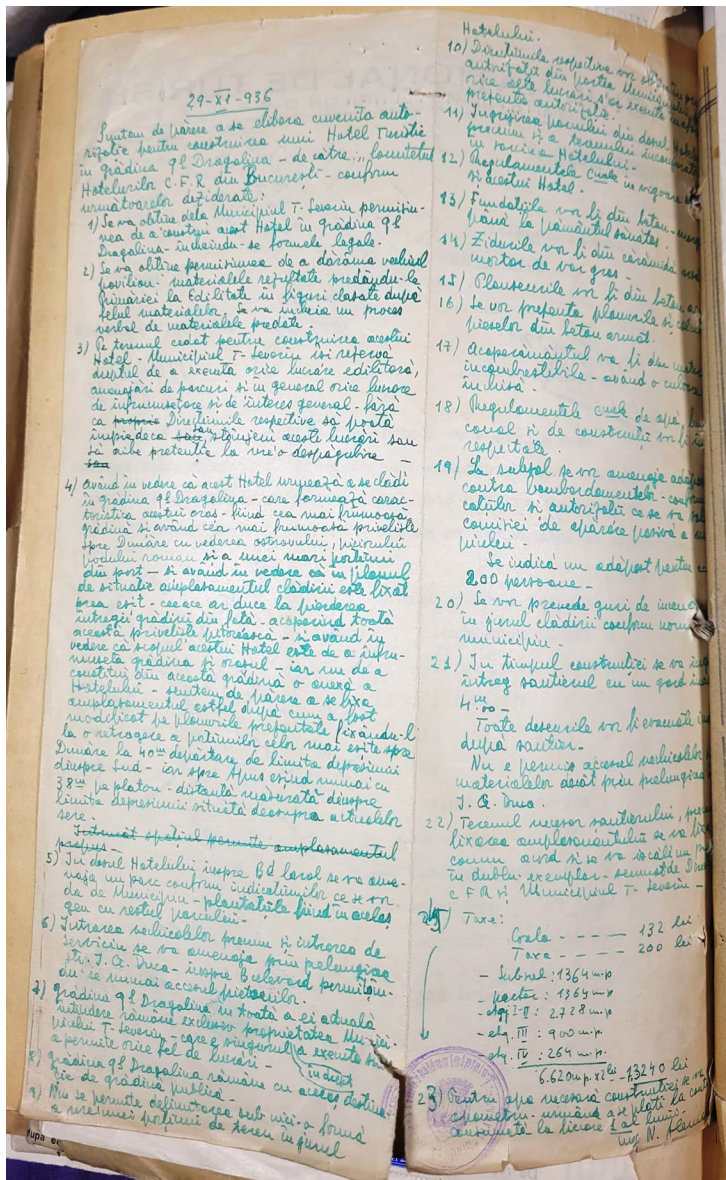 29-XI-936
Suntem de părere a se elibera cuvenita auto-
rizație pentru construirea unui Hotel Turistic
în grădina gl Dragalina - de către Comitetul
Hotelurilor C.F.R din București - conform
următoarelor deziderate:
1) Se va obține dela Municipiul T-Severin permisiu-
nea de a construi acest Hotel în grădina gl
Dragalina - încheindu-se formele legale.
2) Se va obține permisiunea de a dărâma vechiul
pavilion - materialele rezultate predându-le
Primăriei la Edilitate în figuri clasate după
felul materialelor. Se va încheia un proces
verbal de materialele predate.
3) Pe terenul cedat pentru construirea acestui
Hotel - Municipiul T-Severin își rezervă
dreptul de a executa orice lucrare edilitară,
amenajări de parcuri și în general orice lucrare
de înfrumusețare și de interes general - fără
ca proprie Direcțiunile respective să poată
împiedeca sau stânjeni aceste lucrări sau
să aibe pretenția la vre'o despăgubire -
sau
4) având în vedere că acest Hotel urmează a se clădi
în grădina gl Dragalina - care formează carac-
teristica acestui oraș - fiind cea mai frumoasă
grădină și având cea mai frumoasă priveliște
spre Dunăre cu vederea ostrovului, piciorului
podului roman și a unei mari porțiuni
din port - și având în vedere că în planul
de situație amplasamentul clădirii este fixat
prea eșit - ceeace ar duce la pierderea
întregii grădini din față - acoperind toată
această priveliște pitorească - și având în
vedere că scopul acestui Hotel este de a înfru-
museța grădina și orașul - iar nu de a
constitui din această grădină o anexă a
Hotelului - suntem de părere a se fixa
amplasamentul astfel după cum a fost
modificat pe planurile prezentate fixându-l
la o retragere a porțiunilor celor mai eșite spre
Dunăre la 40m depărtare de limita depresiunii
dinspre Sud - iar spre Apus eșind numai cu
38m pe platou - distanță măsurată dinspre
limita depresiunii situată deasupra actualelor
sere.
Întrucât spațiul permite amplasamentul
propus -
5) În dosul Hotelului inspre Bd Carol se va ame-
naja un parc conform indicațiunilor ce se vor
da de Municipiu - plantațiile fiind în acelaș
gen cu restul parcului -
6) Intrarea vehiculelor precum și intrarea de
Serviciu se va amenaja prin prelungirea
str. I. G. Duca - inspre Bulevard permițân-
du-se numai accesul pietonilor.
7) grădina gl Dragalina în toată a ei actuală
întindere rămâne exclusiv proprietatea Munici-
piului T-Severin - care e singurul a executa și
a permite orice fel de lucrări -
în drept
8) grădina gl Dragalina rămâne cu aceeaș destina-
ție de grădină publică -
9) Nu se permite delimitarea sub nici-o formă
a vreunei porțiuni de teren în jurul
Hotelului.
10) Direcțiunile respective vor
autorizații din partea Municipiului
orice alte lucrări s'ar executa
prezenta autorizație.
11) Îngrijirea parcului din dosul Hotelului
precum și a terenului înconjurător
în sarcina Hotelului.
12) Regulamentele în vigoare
și acestui Hotel.
13) Fundațiile vor fi din beton
până la pământul sănătos.
14) Zidurile vor fi din cărămidă
mortar de var gras -
15) Planșeurile vor fi din beton
16) Se vor prezenta planurile și
pieselor din beton armat.
17) Acoperământul va fi din
incombustibile - având o
închisă -
18) Regulamentele de apă,
canal și de construcții vor fi
respectate.
19) La subsol se vor amenaja
contra bombardamentelor -
și autorizații ce se va
comisiei de apărare pasivă a
piului -
Se indică un adăpost pentru
200 persoane -
20) Se vor prevede guri de
în jurul clădirii conform
municipiu -
21) În timpul construcției se va
întreg șantierul cu un gard
4m.00 -
Toate deșeurile vor fi evacuate
după șantier -
Nu e permis accesul vehiculelor
materialelor decât prin prelungirea
I. G. Duca.
22) Terenul necesar șantierului,
fixarea amplasamentului se va
comun acord și se va iscăli un
în dublu exemplar - semnat de
CFR și Municipiul T-Severin -
Taxe:
Coala - - - - - 132 lei
Taxe - - - - - 200 lei
- Subsol : 1364 m.p
- parter : 1364 m.p
- etaj I-II : 2728 m.p
- etaj. III : 900 m.p.
- etaj. IV : 264 m.p.
6.620 m.p. x 2 lei - 13240 lei
23) Pentru apa necesară construcției se va
apometru - urmând a se plăti
la fiecare 1 al lunii.
ing N.